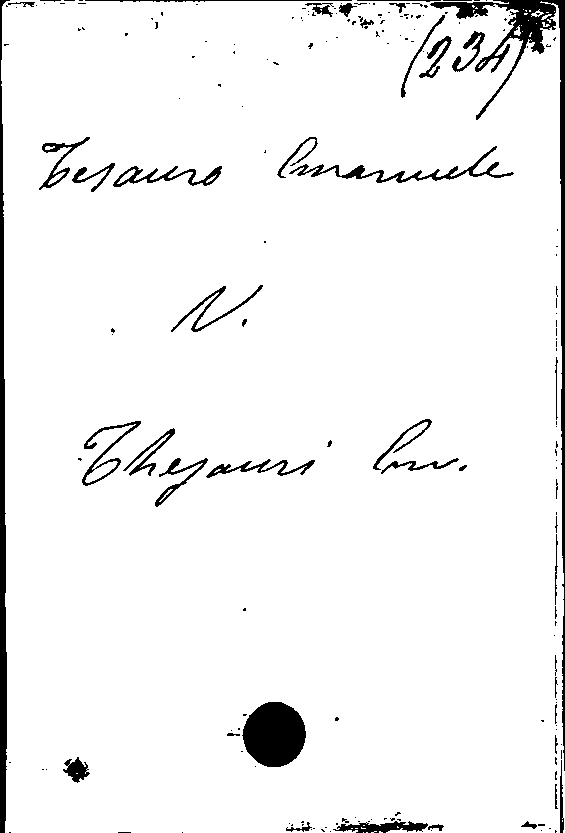 (234)
Tesauro Emanuele
V.
Thesauri Em.